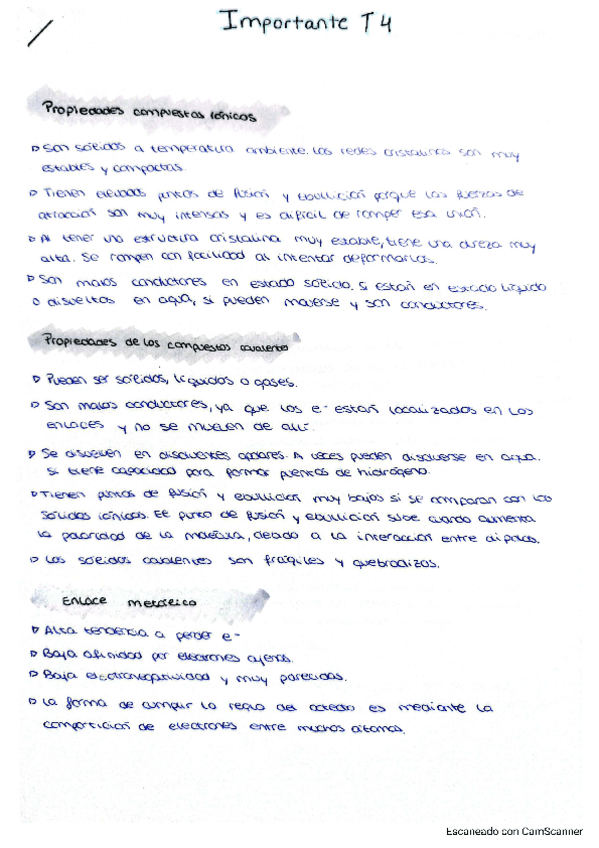 Importante T4
Propiedades compuestos iónicos
Son sólidos a temperatura ambiente. Las redes cristalinas son muy
estables y compactas.
Tienen elevados puntos de fusión y ebullición porque las fuerzas de
atracción son muy intensas y es difícil de romper esa unión.
Al tener una estructura cristalina muy estable, tiene una dureza muy
alta. Se rompen con facilidad al intentar deformarlas.
Son malos conductores en estado sólido. Si están en estado líquido
o disueltos en agua, si pueden moverse y son conductores.
Propiedades de los compuestos covalentes
Pueden ser sólidos, líquidos o gases.
Son malos conductores, ya que los e- están localizados en los
enlaces y no se mueven de allí.
Se disuelven en disolventes apolares. A veces pueden disolverse en agua.
si tiene capacidad para formar puentes de hidrógeno.
Tienen puntos de fusión y ebullición muy bajos si se comparan con los
sólidos iónicos. El punto de fusión y ebullición sube cuando aumenta
la polaridad de la molécula, debido a la interacción entre dipolos.
Los sólidos covalentes son frágiles y quebradizos.
Enlace metálico
Alta tendencia a perder e-
Baja afinidad por electrones ajenos.
Baja electronegatividad y muy parecidas.
La forma de cumplir la regla del octeto es mediante la
compartición de electrones entre muchos átomos.
Escaneado con CamScanner